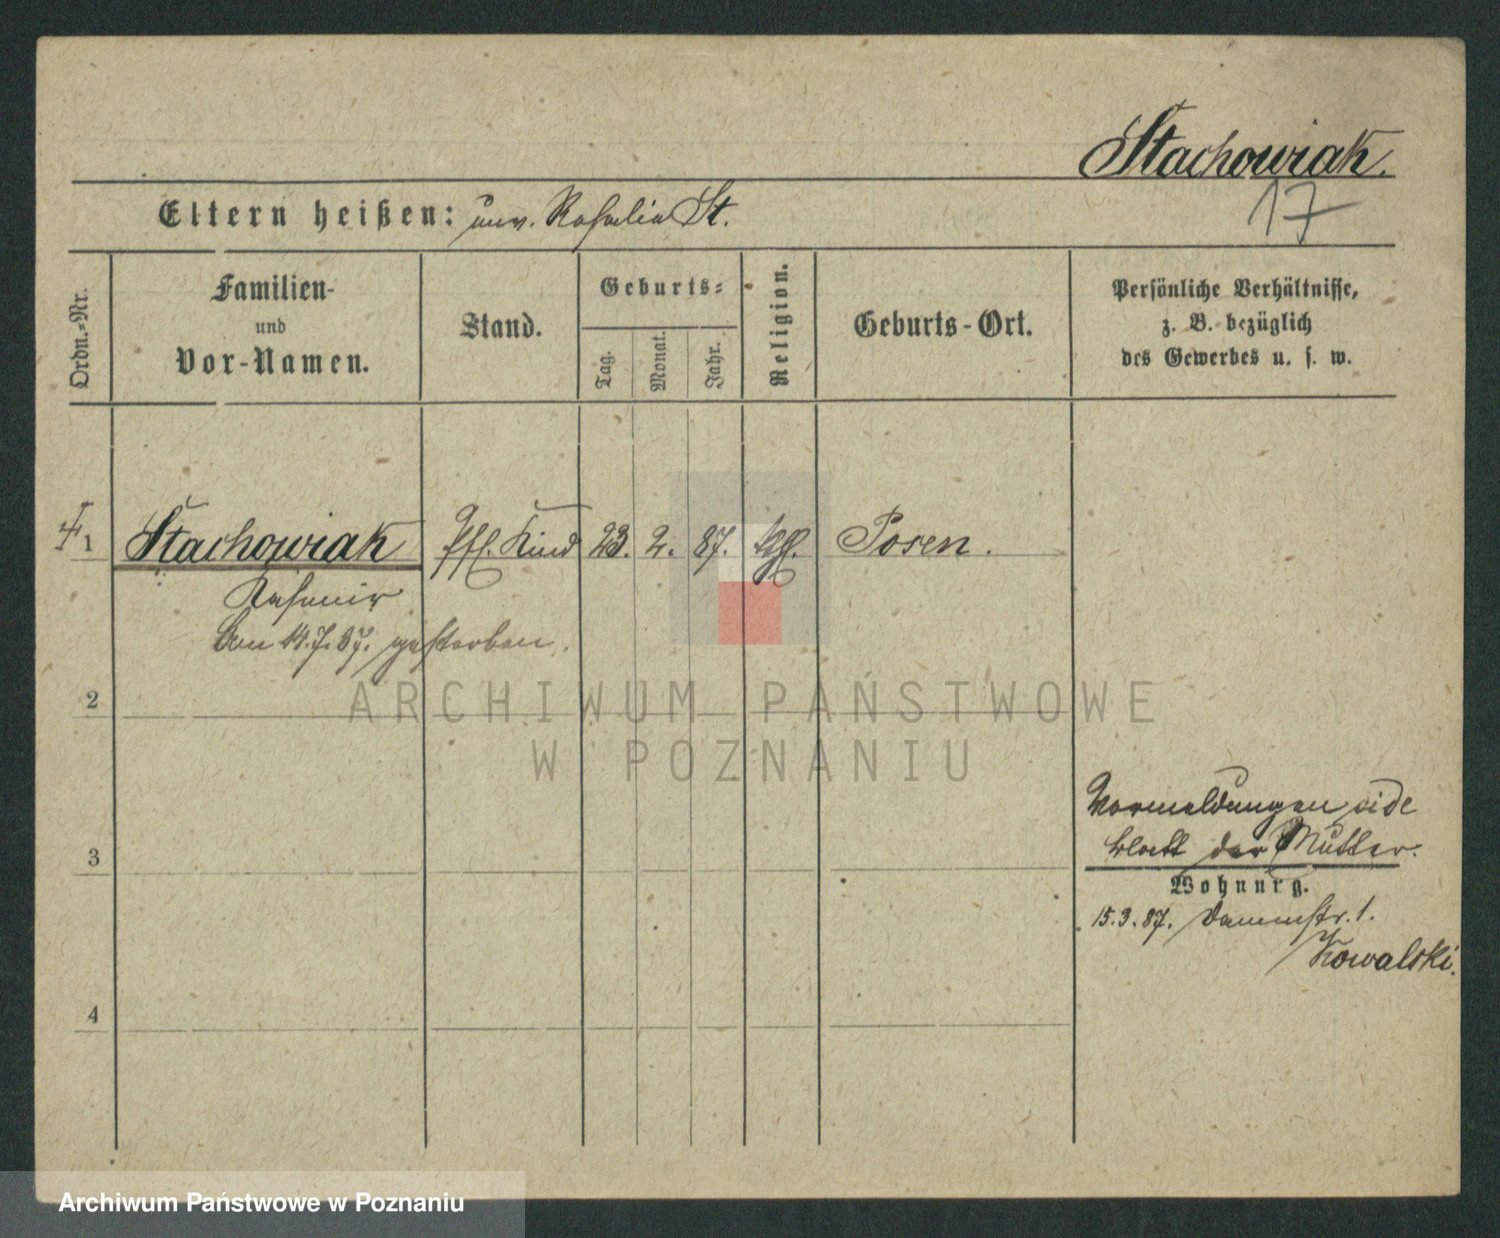 Stachowiak.
17
Eltern heißen: unv. Rosalia St.
Ordn.-Nr.
Familien-
und
Vor-Namen.
Stand.
Geburts-
Tag.
Monat.
Jahr.
Religion.
Geburts-Ort.
Persönliche Verhältnisse,
z. B. bezüglich
des Gewerbes u. s. w.
1 Stachowiak Kind 23. 2. 87. kath. Posen.
Kasimir
am 14.7.87. gestorben.
2
ARCHIWUM PAŃSTWOWE
W POZNANIU
Vormeldungen vide
Blatt der Mutter.
3
Wohnung.
15.3.87. Dammstr. 1.
Kowalski.
4
Archiwum Państwowe w Poznaniu